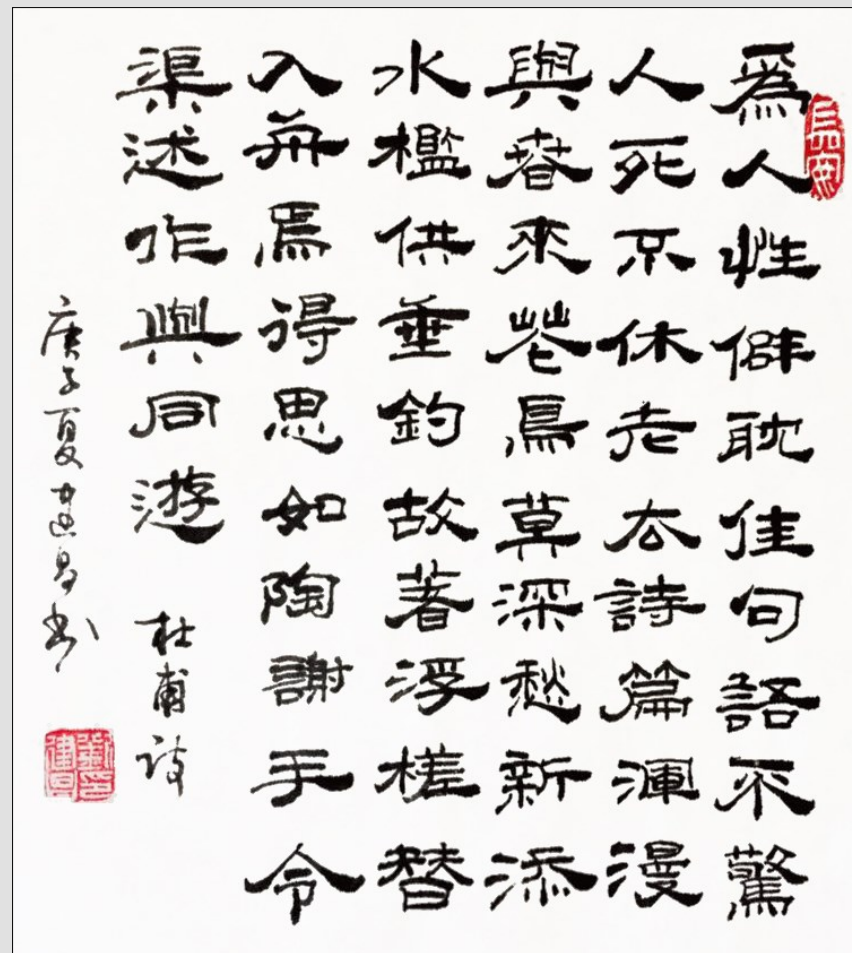 爲人性僻耽佳句語不驚
人死不休老去詩篇渾漫
與春來花鳥莫深愁新添
水檻供垂釣故著浮槎替
入舟焉得思如陶謝手令
渠述作與同遊 杜甫詩
庚子夏建昌书
劉印建昌